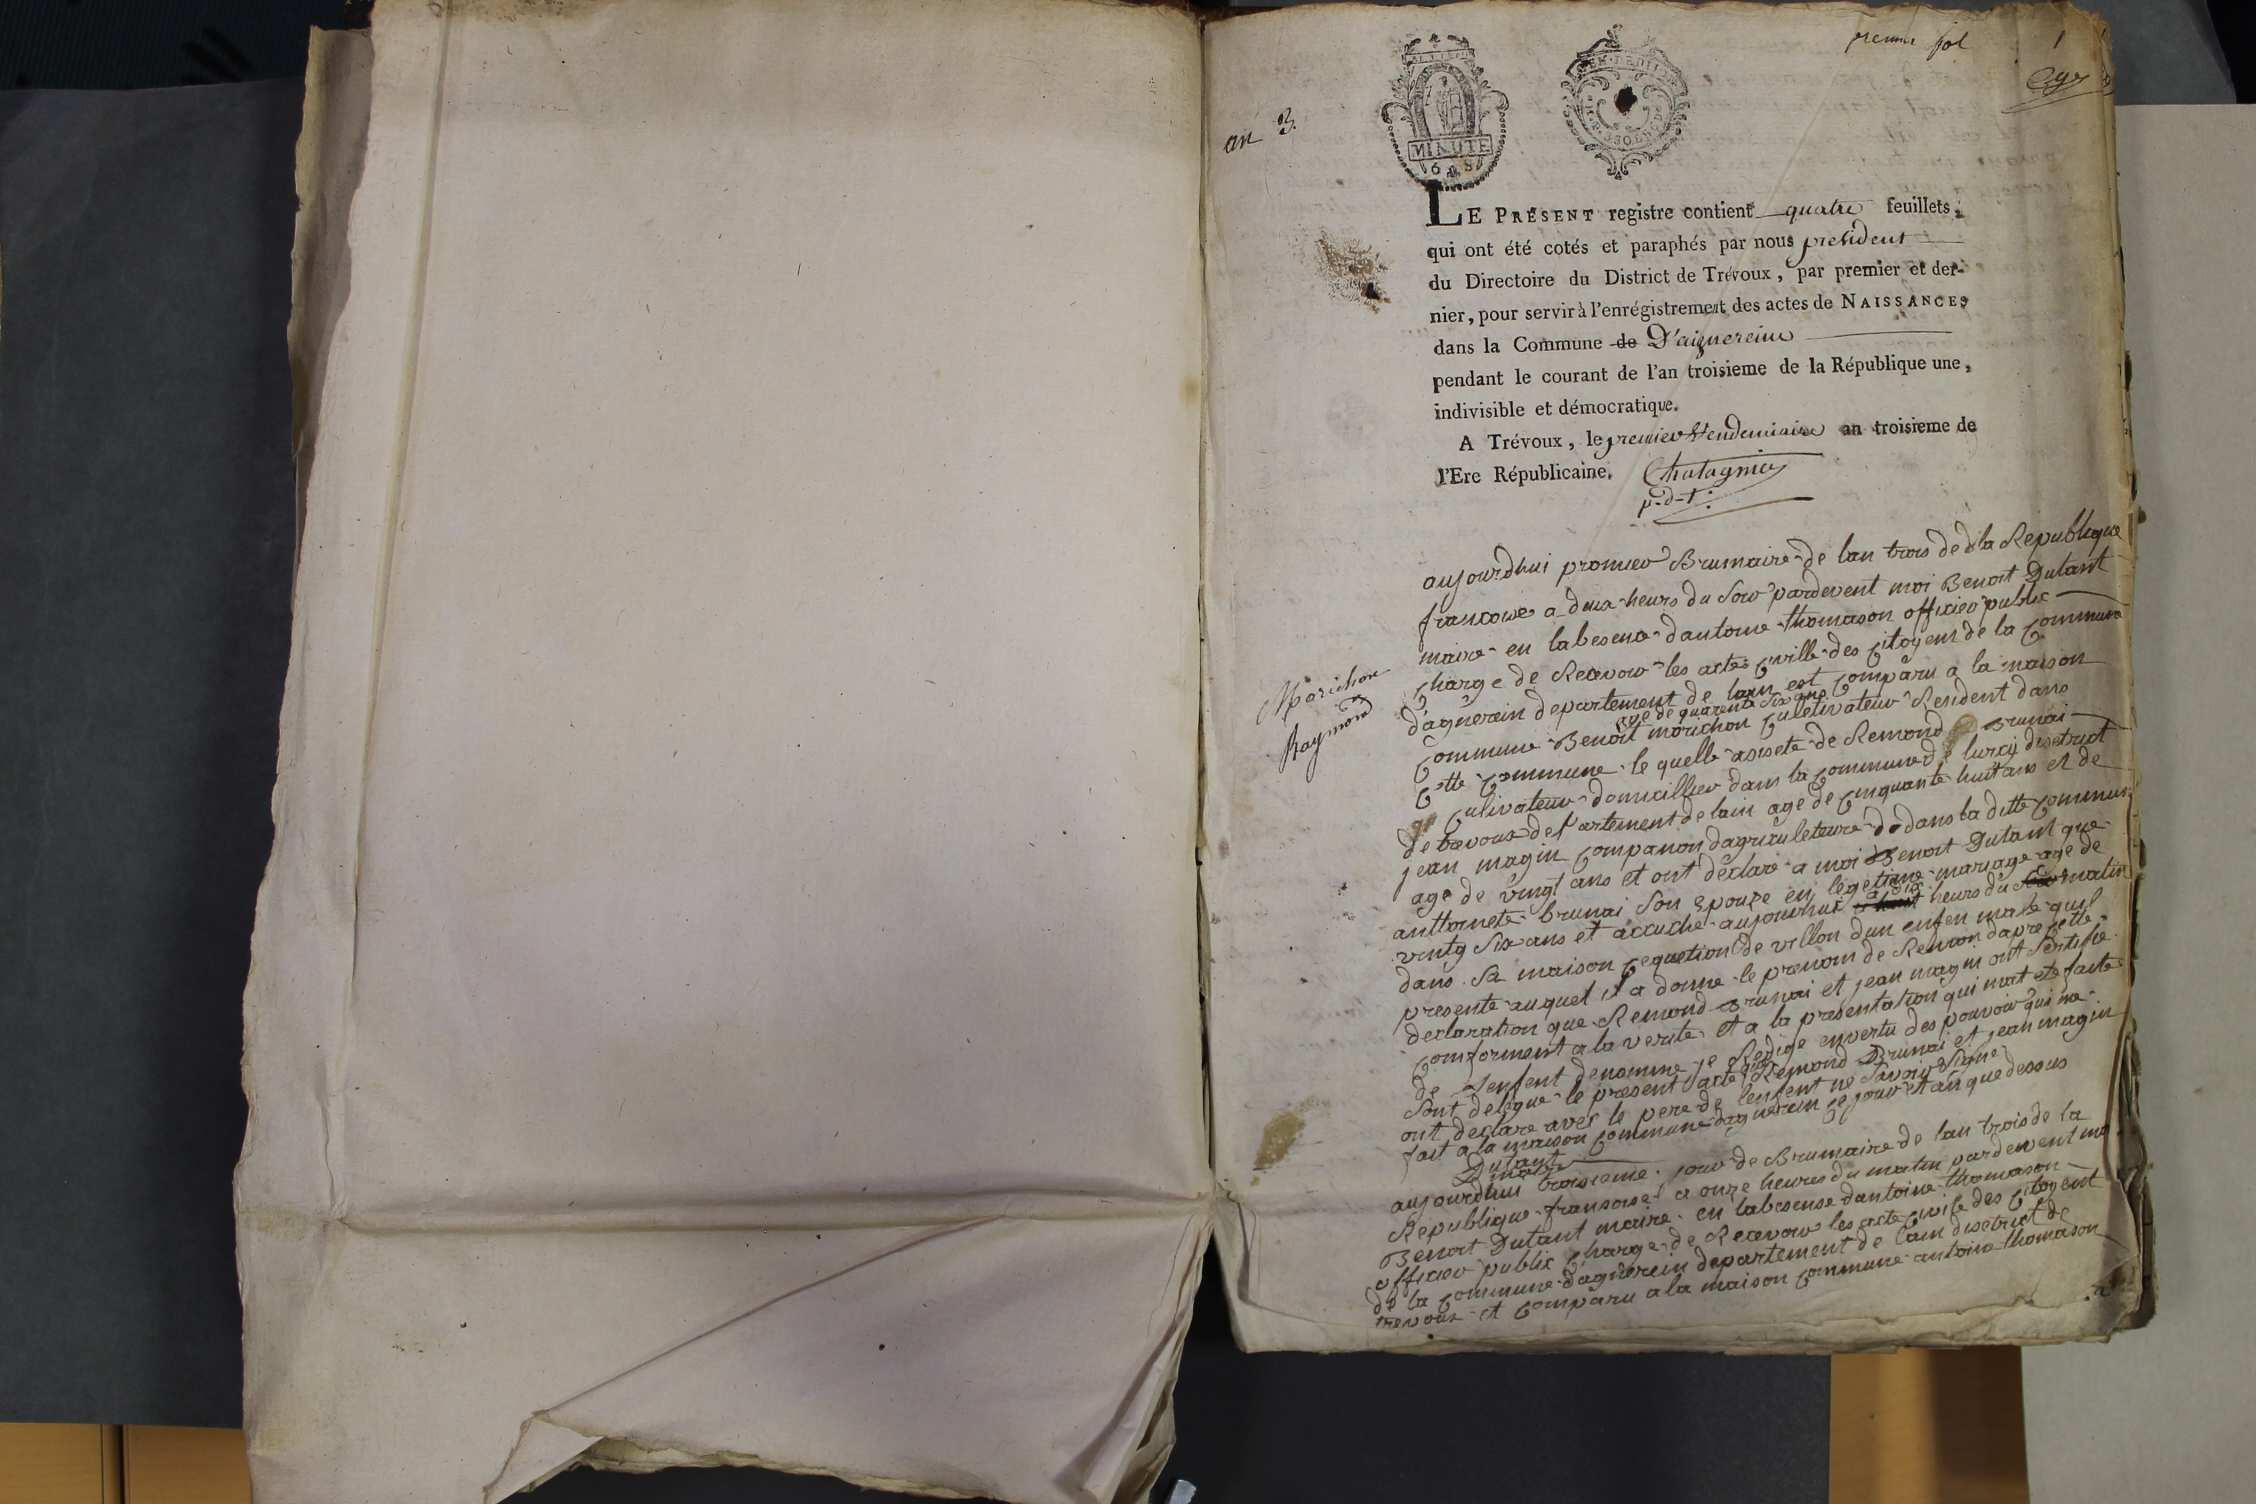 premier fol 1
an 3.
MINUTE
6 d. 8
LE PRÉSENT registre contient quatre feuillets,
qui ont été cotés et paraphés par nous president
du Directoire du District de Trévoux, par premier et der-
nier, pour servir à l'enrégistrement des actes de NAISSANCES
dans la Commune de D'aignereins
pendant le courant de l'an troisieme de la République une,
indivisible et démocratique.
A Trévoux, le premier Vendemiaire an troisieme de
l'Ere Républicaine. Chatagnier
p-d-t.
Morichon
Raymond
aujourdhui promier Brumaire de lan trois de dla Republique
francoise a deux heurs du Soir pardevent moi Benoit Dutant
maire en labesence dantoine thomason officier public
Charge de Recevoir les actes Civille des Citoyens de la Commune
d'agnerein departement de lain est Comparu a la maison
age de quarente Six ans
Commune Benoit morichon Culetivateur Resident dans
Cette Commune le quelle asisete de Remond Brunai
Culivateur domicillier dans la Commune de lurcy disetrict
de trevoux departement de lain age de Cinquante huit ans et de
jean magin Companon dagriculeteure de dans la ditte Commune
age de vingt ans et ont declare a moi Benoit Dutant que
anttornete brunai Son Epouse en legetime mariage age de
vintg Six ans et accuche aujourdhui a huit a dix heurs du Soir matin
dans Sa maison Cequetion de villon dun enfen male quil
presente auquel il a donne le prenom de Remon dapre Cette
declaration que Remond Brunai et jean magin ont Sertifie
Comforment a la verite et a la presentation qui mat ete faite
de Lenfent denomme je Redige envertu des pouvoir qui me
Sont delegue le present acte que Remond Brunai et jean magin
ont declare avec le pere de lenfent ne Savoir Signe
fait a la maison Commune dagnerein Ce jour et an que dessus
Dutant
maire
aujourdhui troisieme jour de Brumaire de lan trois de la
Republique fransoise a onze heures du matin pardewent moi
Benoit Dutant maire en labesense dantoine thomason
officier publix Charge de Recevoir les acte Civile des Citoyent
de la Commune dagnerein departement de lain disetrict de
trevoux et Comparu a la maison Commune antoine thomason